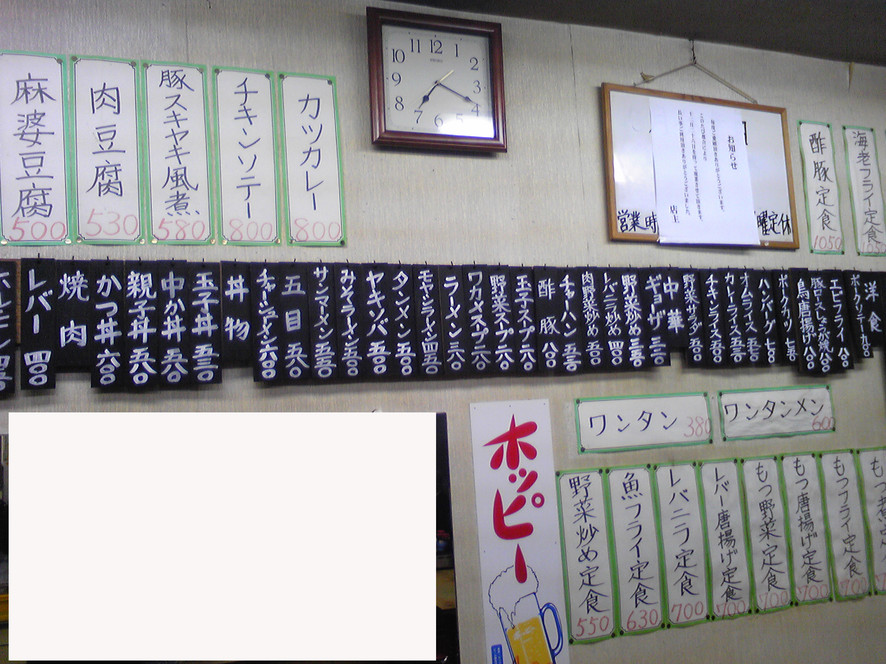 麻婆豆腐
500
肉豆腐
530
豚スキヤキ風煮
580
チキンソテー
800
カツカレー
800
11 12 1
10 2
9 3
8 4
7 6 5
お知らせ
店主
営業時
曜定休
酢豚定食
1050
海老フライ定食
レバー 四〇〇
焼肉
かつ丼 六〇〇
親子丼 五八〇
中か丼 五八〇
玉子丼 五三〇
丼物
チャーシューメン 六〇〇
五目 五八〇
サンマーメン 五五〇
みそラーメン 五五〇
ヤキソバ 五五〇
タンメン 五五〇
モヤシラーメン 四五〇
ラーメン 三八〇
ワカメスープ 二六〇
野菜スープ 二六〇
玉子スープ 二六〇
酢豚 八〇〇
チャーハン 五三〇
肉野菜炒め 五五〇
レバニラ 五五〇
野菜炒め 三五〇
ギョーザ 三二〇
中華
野菜サラダ 五〇〇
チキンライス 五五〇
カレーライス 五五〇
オムライス 五五〇
ハンバーグ 七〇〇
ポークカツ 七五〇
鳥唐揚げ 八〇〇
豚ロースしょうが焼 八〇〇
エビフライ 八〇〇
ポークソテー 九〇〇
洋食
ワンタン
380
ワンタンメン
600
ホッピー
野菜炒め定食
550
魚フライ定食
630
レバニラ定食
700
レバー唐揚げ定食
700
もつ野菜定食
700
もつ唐揚げ定食
700
もつフライ定食
700